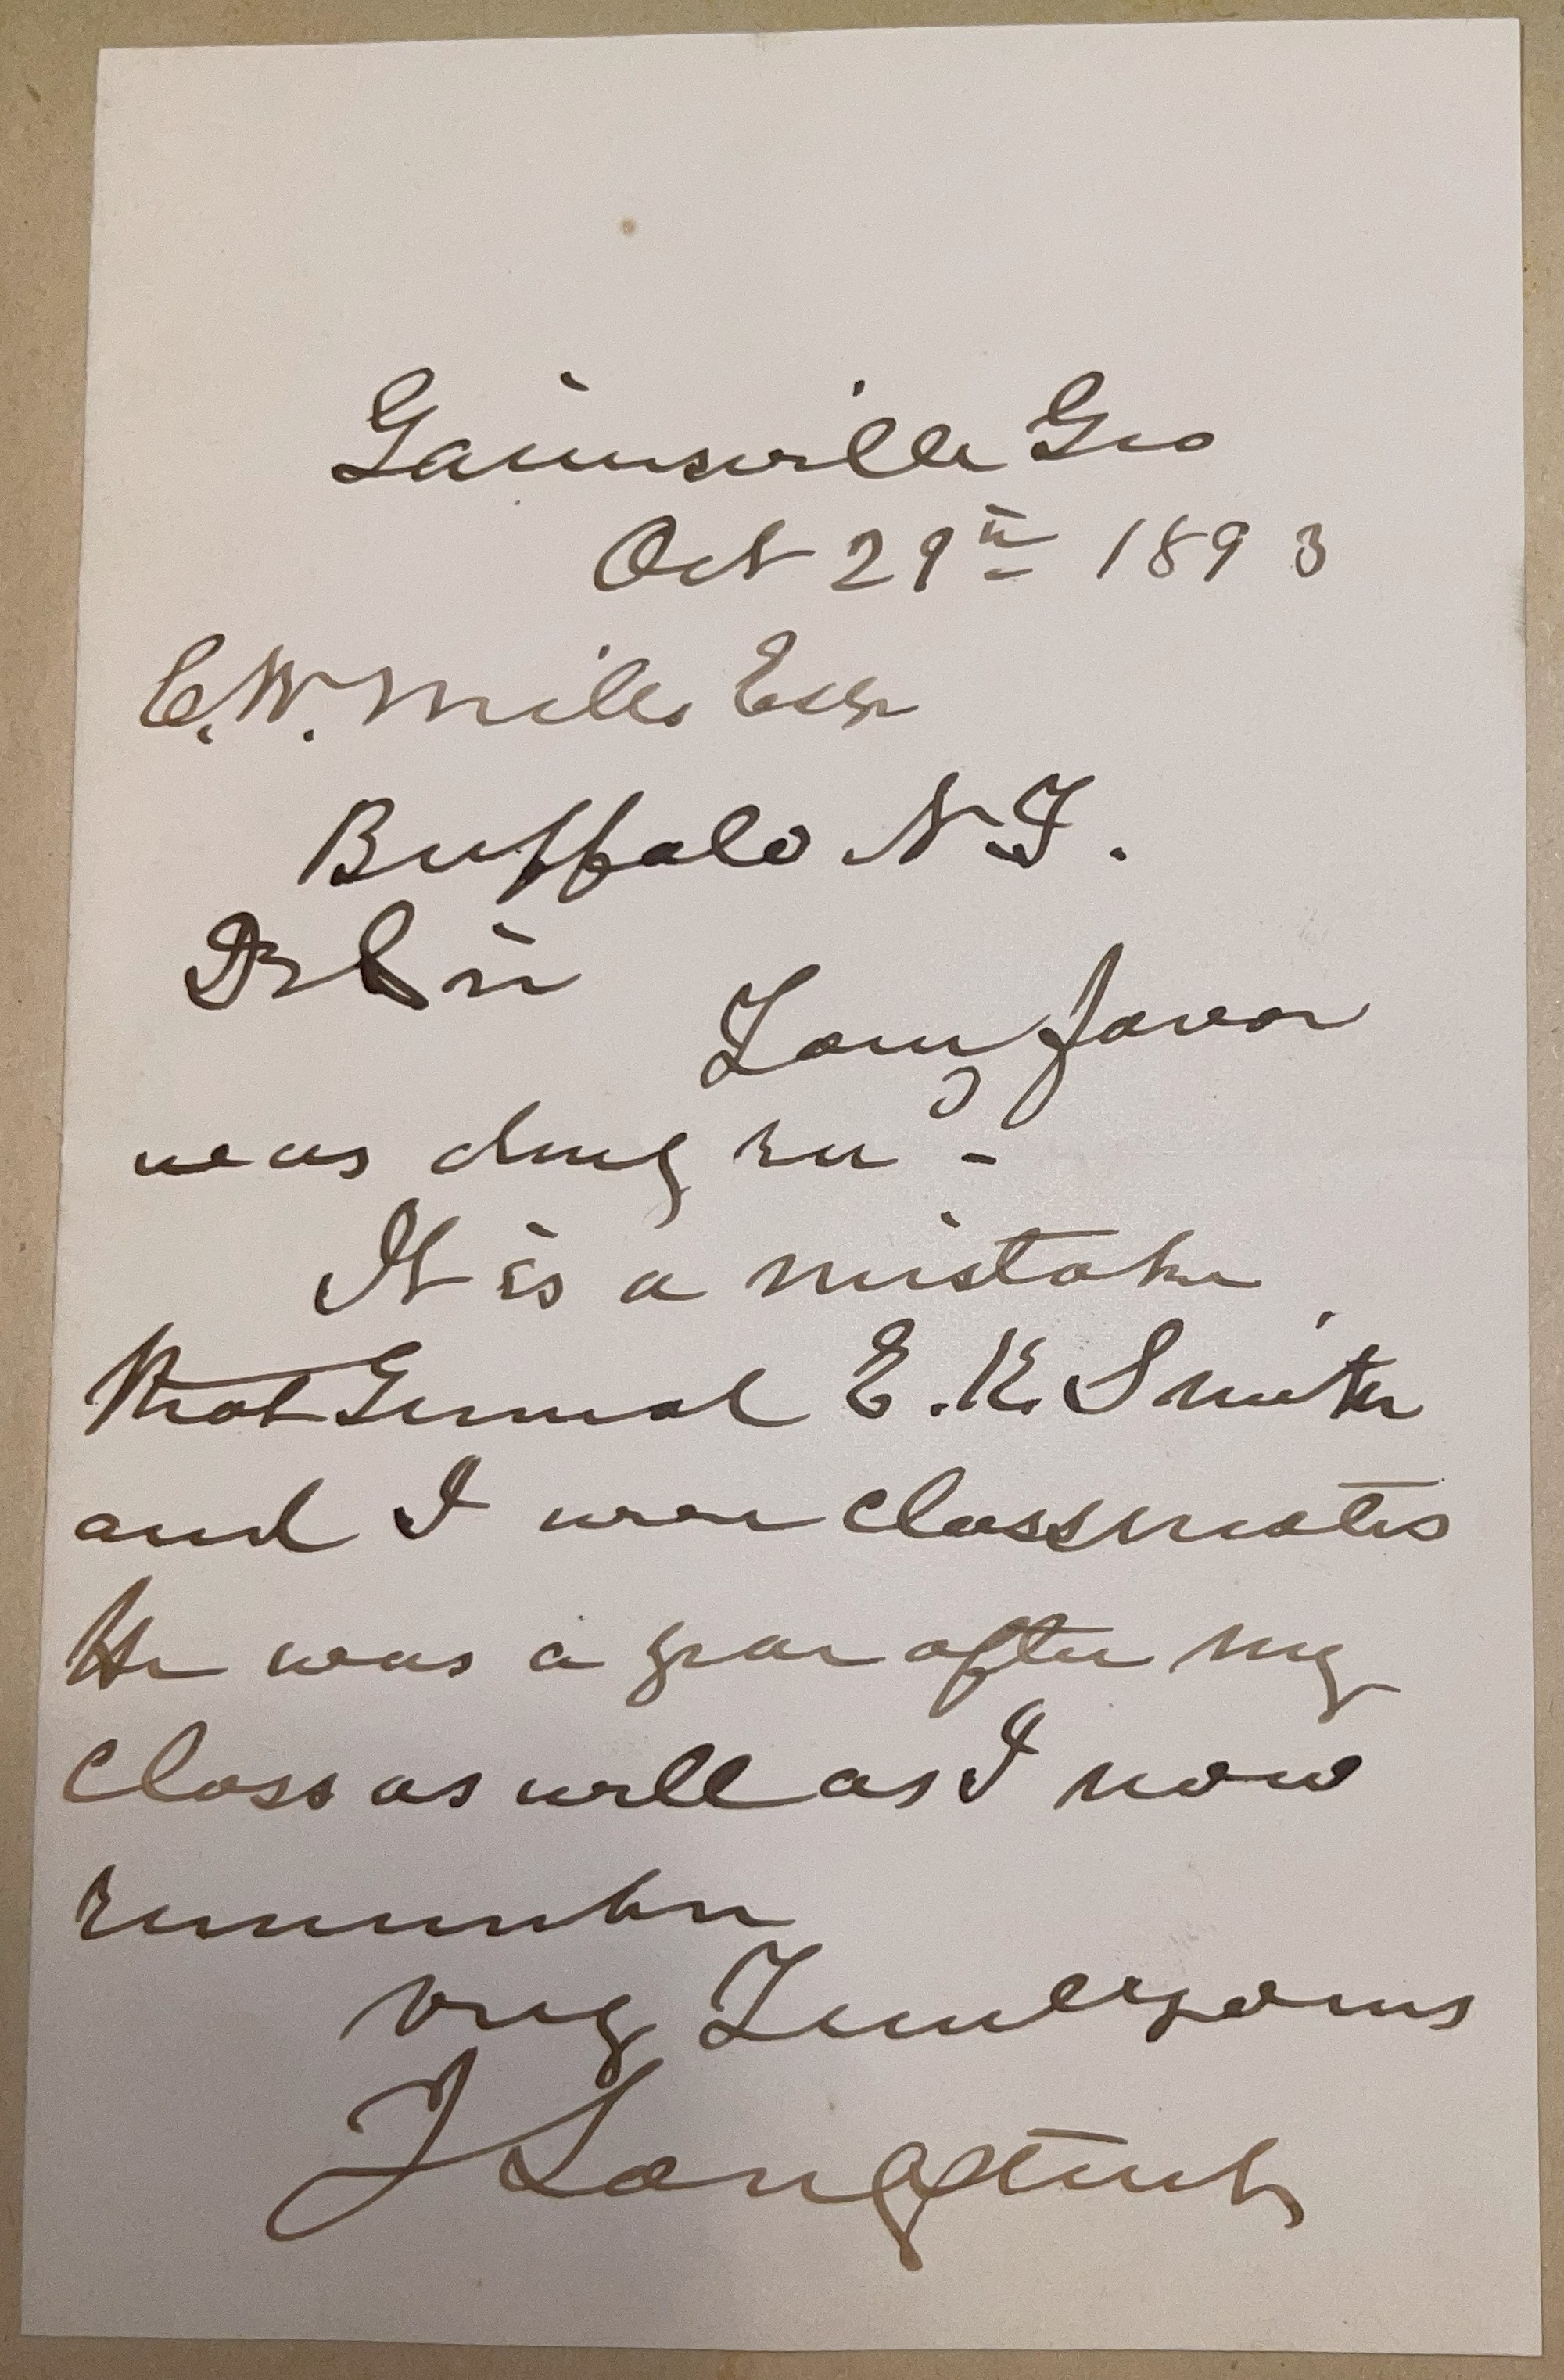 Gainesville Geo
Oct 29th 1893
C. W. Mills Esqr
Buffalo N.Y.
Dr Sir
Your favor
was duly rec -
It is a mistake
that General E. K. Smith
and I were classmates
He was a year after my
class as well as I now
remember
Very Truly yours
J Longstreet